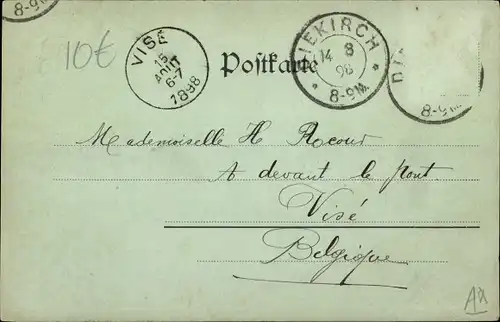 8-9M
10€
VISÉ
15
AOUT
6-7
1898
Postkarte
DIEKIRCH
14 8
98
* 8-9M. *
DI
8-9M.
Mademoiselle H Rocour
A devant le Pont
Visé
Belgique